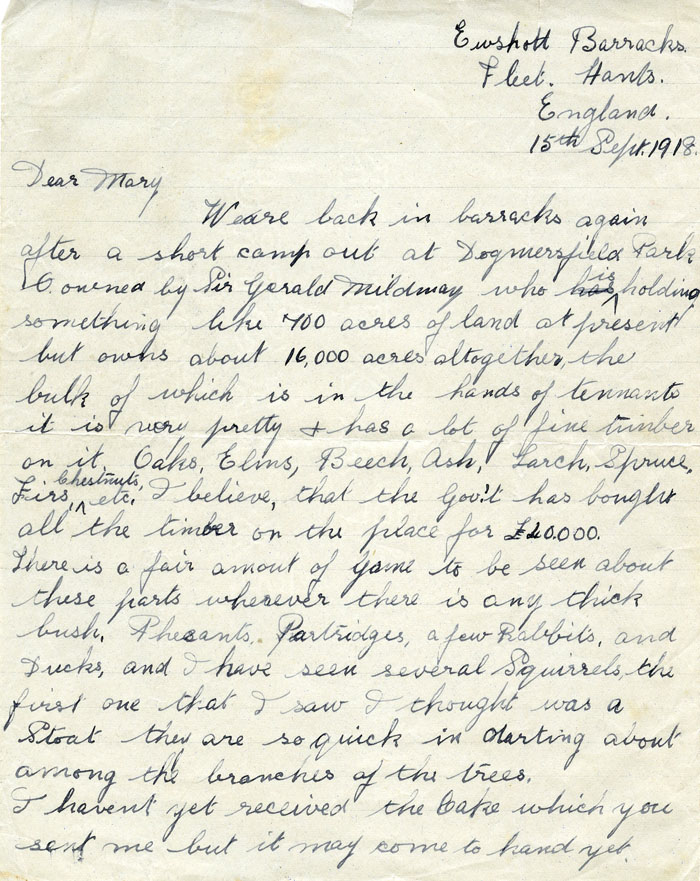 Ewshott Barracks.
Fleet. Hants.
England.
15th Sept. 1918.
Dear Mary
We are back in barracks again
after a short camp out at Dogmersfield Park
owned by Sir Gerald Mildmay who has is holding
something like 700 acres of land at present
but owns about 16,000 acres altogether, the
bulk of which is in the hands of tennants
it is very pretty & has a lot of fine timber
on it. Oaks, Elms, Beech, Ash, Larch, Spruce,
Firs, Chestnuts, etc. I believe, that the Gov!t has bought
all the timber on the place for £40.000.
There is a fair amout of game to be seen about
these parts wherever there is any thick
bush, Phesants, Partridges, a few Rabbits, and
Ducks, and I have seen several Squirrels, the
first one that I saw I thought was a
Stoat they are so quick in darting about
among the branches of the trees.
I havent yet received the Cake which you
sent me but it may come to hand yet.